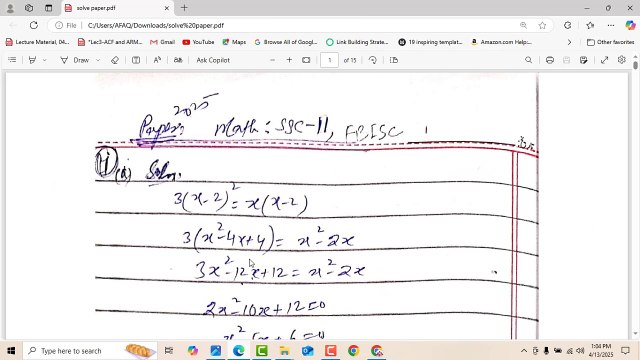 solve paper.pdf
File C:/Users/AFAQ/Downloads/solve%20paper.pdf
Lecture Material, 04... "Lec3-ACF and ARM... YouTube Maps Browse All of Google... Link Building Strate... 19 inspiring templat... Amazon.com Help:... Other favorites
Draw Ask Copilot 1 of 15 Edit with Acrobat
2025
Paper: Math: SSC-II, FBISC
(i) Soln:
3(x-2)² = x(x-2)
3(x²-4x+4) = x²-2x
3x²-12x+12 = x²-2x
2x²-10x+12=0
Type here to search
1:04 PM
4/13/2025